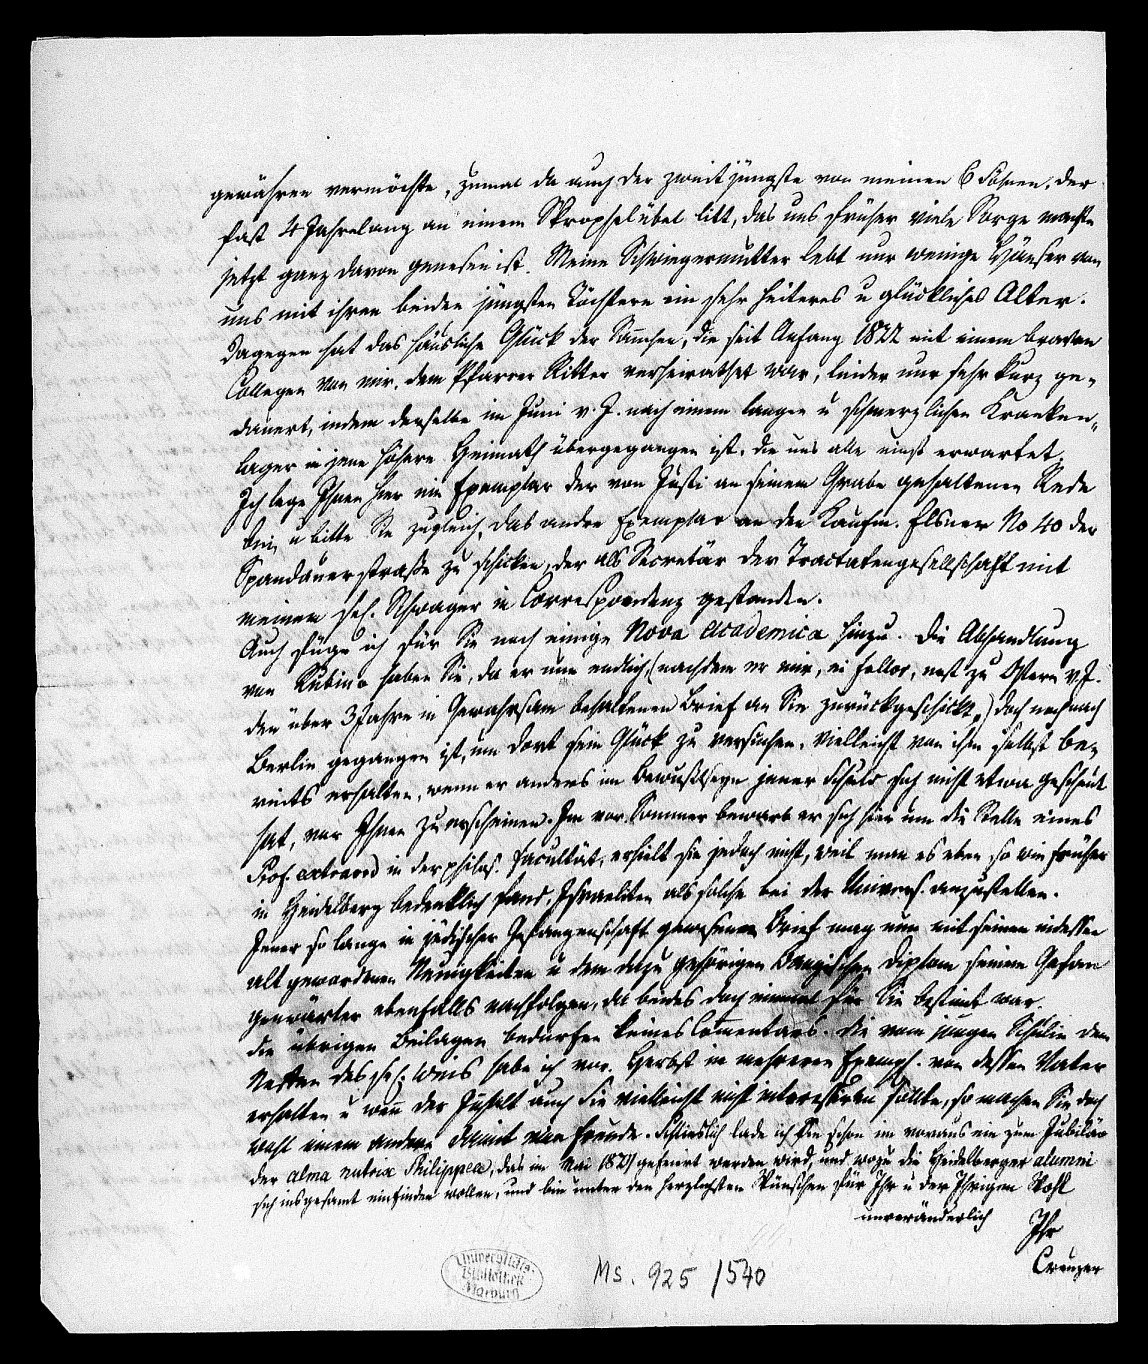 gewähren vermöchte, zumal da auch der zweitjüngste von meinen 6 Söhnen, der
fast 4 Jahrelang an einem Skrophelübel litt, das uns früher viele Sorge machte
jetzt ganz davon genesen ist. Meine Schwiegermutter lebt nur wenige Häuser von
uns mit ihren beiden jüngsten Töchtern ein sehr heiteres u glückliches Alter.
Dagegen hat das häusliche Glück der, die seit Anfang 1822 mit einem braven
Collegen von mir, dem Pfarrer Ritter verheirathet war, leider nur sehr kurz ge-
dauert, indem derselbe im Juni v. J. nach einem langen u schmerzlichen Kranken-
lager in jene höhere Heimath übergegangen ist, die uns alle einst erwartet.
Ich lege Ihnen hier ein Exemplar der von Justi an seinem Grabe gehaltenen Rede
bei, u bitte Sie zugleich, das andre Exemplar an den Kaufm. Elsner No 40 der
Spandauerstraße zu schicken, der als Secretär der Tractatengesellschaft mit
meinem sel. Schwager in Correspondenz gestanden.
Auch füge ich für Sie noch einige Nova academica hinzu. Die Abhandlung
von Rubino haben Sie, da er nun endlich, (nachdem er mir, erst zu Ostern v. J.
den über 3 Jahre in Gewahrsam behaltenen Brief an Sie zurückgeschickt,) doch noch nach
Berlin gegangen ist, um dort sein Glück zu versuchen, vielleicht von ihm selbst be-
reits erhalten, wenn er anders im Bewußtseyn jener Schuld sich nicht etwa gescheut
hat, vor Ihnen zu erscheinen. Im vor. Sommer bewarb er sich hier um die Stelle eines
Prof. extraord in der philos. Facultät, erhielt sie jedoch nicht, weil man es eben so wie früher
in Heidelberg bedenklich fand, Israeliten als solche bei der Univers. anzustellen.
Jener so lange in jüdischer Gefangenschaft gewesene Brief mag nun mit seinen indessen
alt gewordenen Neuigkeiten u dem dazu gehörigen Diplom seinem Gefan
genwärter ebenfalls nachfolgen, da beides doch einmal für Sie bestimt war.
Die übrigen Beilagen bedürfen keines Comentars. Die vom jungen dem
Neffen des sel. habe ich vor. Herbst in mehreren Exempl. von dessen Vater
erhalten u wenn der Inhalt auch Sie vielleicht nicht interessiren sollte, so machen Sie doch
wohl einem andern damit eine Freude. Schließlich lade ich Sie schon im voraus ein zum Jubiläo
der alma nutrix Philippea, das im Mai 1827 gefeiert werden wird, und wozu die Heidelberger alumni
sich insgesamt einfinden wollen, und bin unter den herzlichsten Wünschen für Ihr u der Ihrigen Wohl
unveränderlich
Ihr
Creuzer
Universitäts-
Bibliothek
Marburg
Ms. 925 / 540